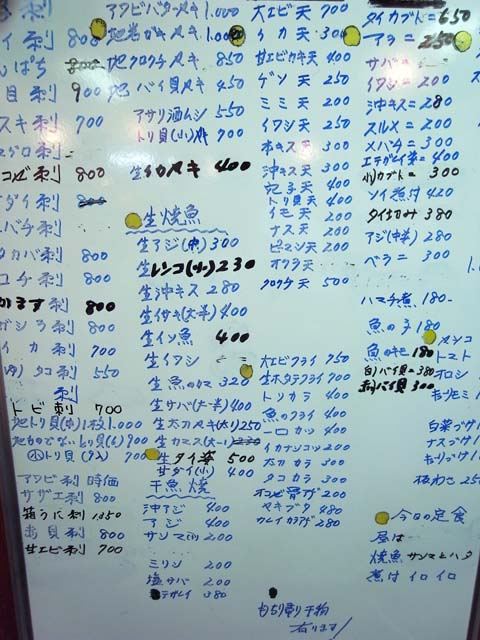 刺
イ刺 800
んぱち 800
貝刺 900
スキ刺 700
マグロ刺
コメダ刺 800
ダイ刺 800
バチ刺
タカバ刺 800
コチ刺 800
かます刺 800
ガシラ刺 800
イカ刺 700
タコ刺 550
刺
トビ刺 700
地トリ貝(中)1枚 1,000
地ものでないとり貝(6) 900
小トリ貝(9入) 700
アワビ刺 時価
サザエ刺 800
箱うに刺 1350
赤貝刺 800
甘エビ刺 700
アワビバターヤキ 1,000
地岩ガキヤキ 1,000
地クログチヤキ 850
地バイ貝ヤキ 450
アサリ酒ムシ 550
トリ貝(小)ヤキ 700
生イカヤキ 400
生焼魚
生アジ(中) 300
生レンコ(小) 230
生沖キス 280
生イサキ(大半) 400
生イソ魚 400
生イワシ
生魚のカマ 320
生サバ(大-半) 400
生太刀ヤキ(大) 250
生カミス(大-1)
生タイ 500
甘ダイ(小) 400
干魚焼
沖アジ 400
アジ 400
サンマ 200
ミリン 200
塩サバ 200
テガレイ 380
大エビ天 700
イカ天 300
甘エビカキ天 400
ゲソ天 250
ミミ天 200
イワシ天 250
本キス天 300
沖キス天 300
穴子天 400
トリ貝天 400
イモ天 200
ナス天 200
ピーマン天 200
オクラ天
クログチ天 500
大エビフライ 750
生ホタテフライ 700
トリカラ 400
魚のフライ 400
一口カツ 400
イカナンコツ 200
太刀カラ 300
タコカラ 300
200
ペキブタ 480
カレイカラアゲ 280
もち帰り干物
有ります
タイカブト＝650
アラ＝250
サバ＝
イワシ＝200
沖キス＝280
スルメ＝200
メバチ＝300
エテガレイ煮＝400
カブト＝ 300
ソイ煮付 420
タイ切カミ 380
アジ(中半) 280
ベラ＝ 300
ハマチ煮 180-
魚の子 180
魚のキモ 180
白バイ貝＝380
赤バイ貝 300
トマト
オロシ
白菜づけ
ナスづけ
きゅうりづけ
板わさ 250
今日の定食
昼は
焼魚 サンマとハタ
煮は イロイロ